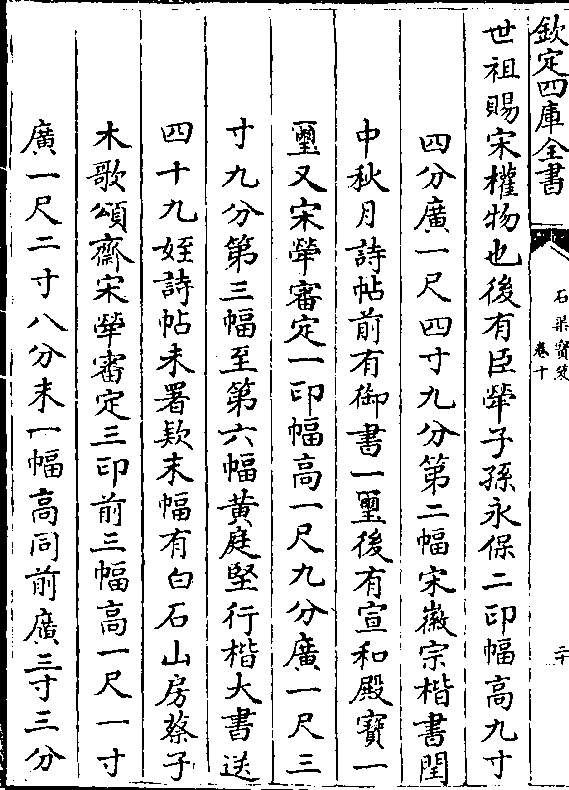 欽定四庫全書
石渠寶笈
卷十
二十
世祖賜宋權物也後有臣犖子孫永保二印幅高九寸
四分廣一尺四寸九分第二幅宋徽宗楷書閏
中秋月詩帖前有御書一璽後有宣和殿寶一
璽又宋犖審定一印幅高一尺九分廣一尺三
寸九分第三幅至第六幅黄庭堅行楷大書送
四十九姪詩帖未署欵末幅有白石山房蔡子
木歌頌齋宋犖審定三印前三幅高一尺一寸
廣一尺二寸八分末一幅高同前廣三寸三分